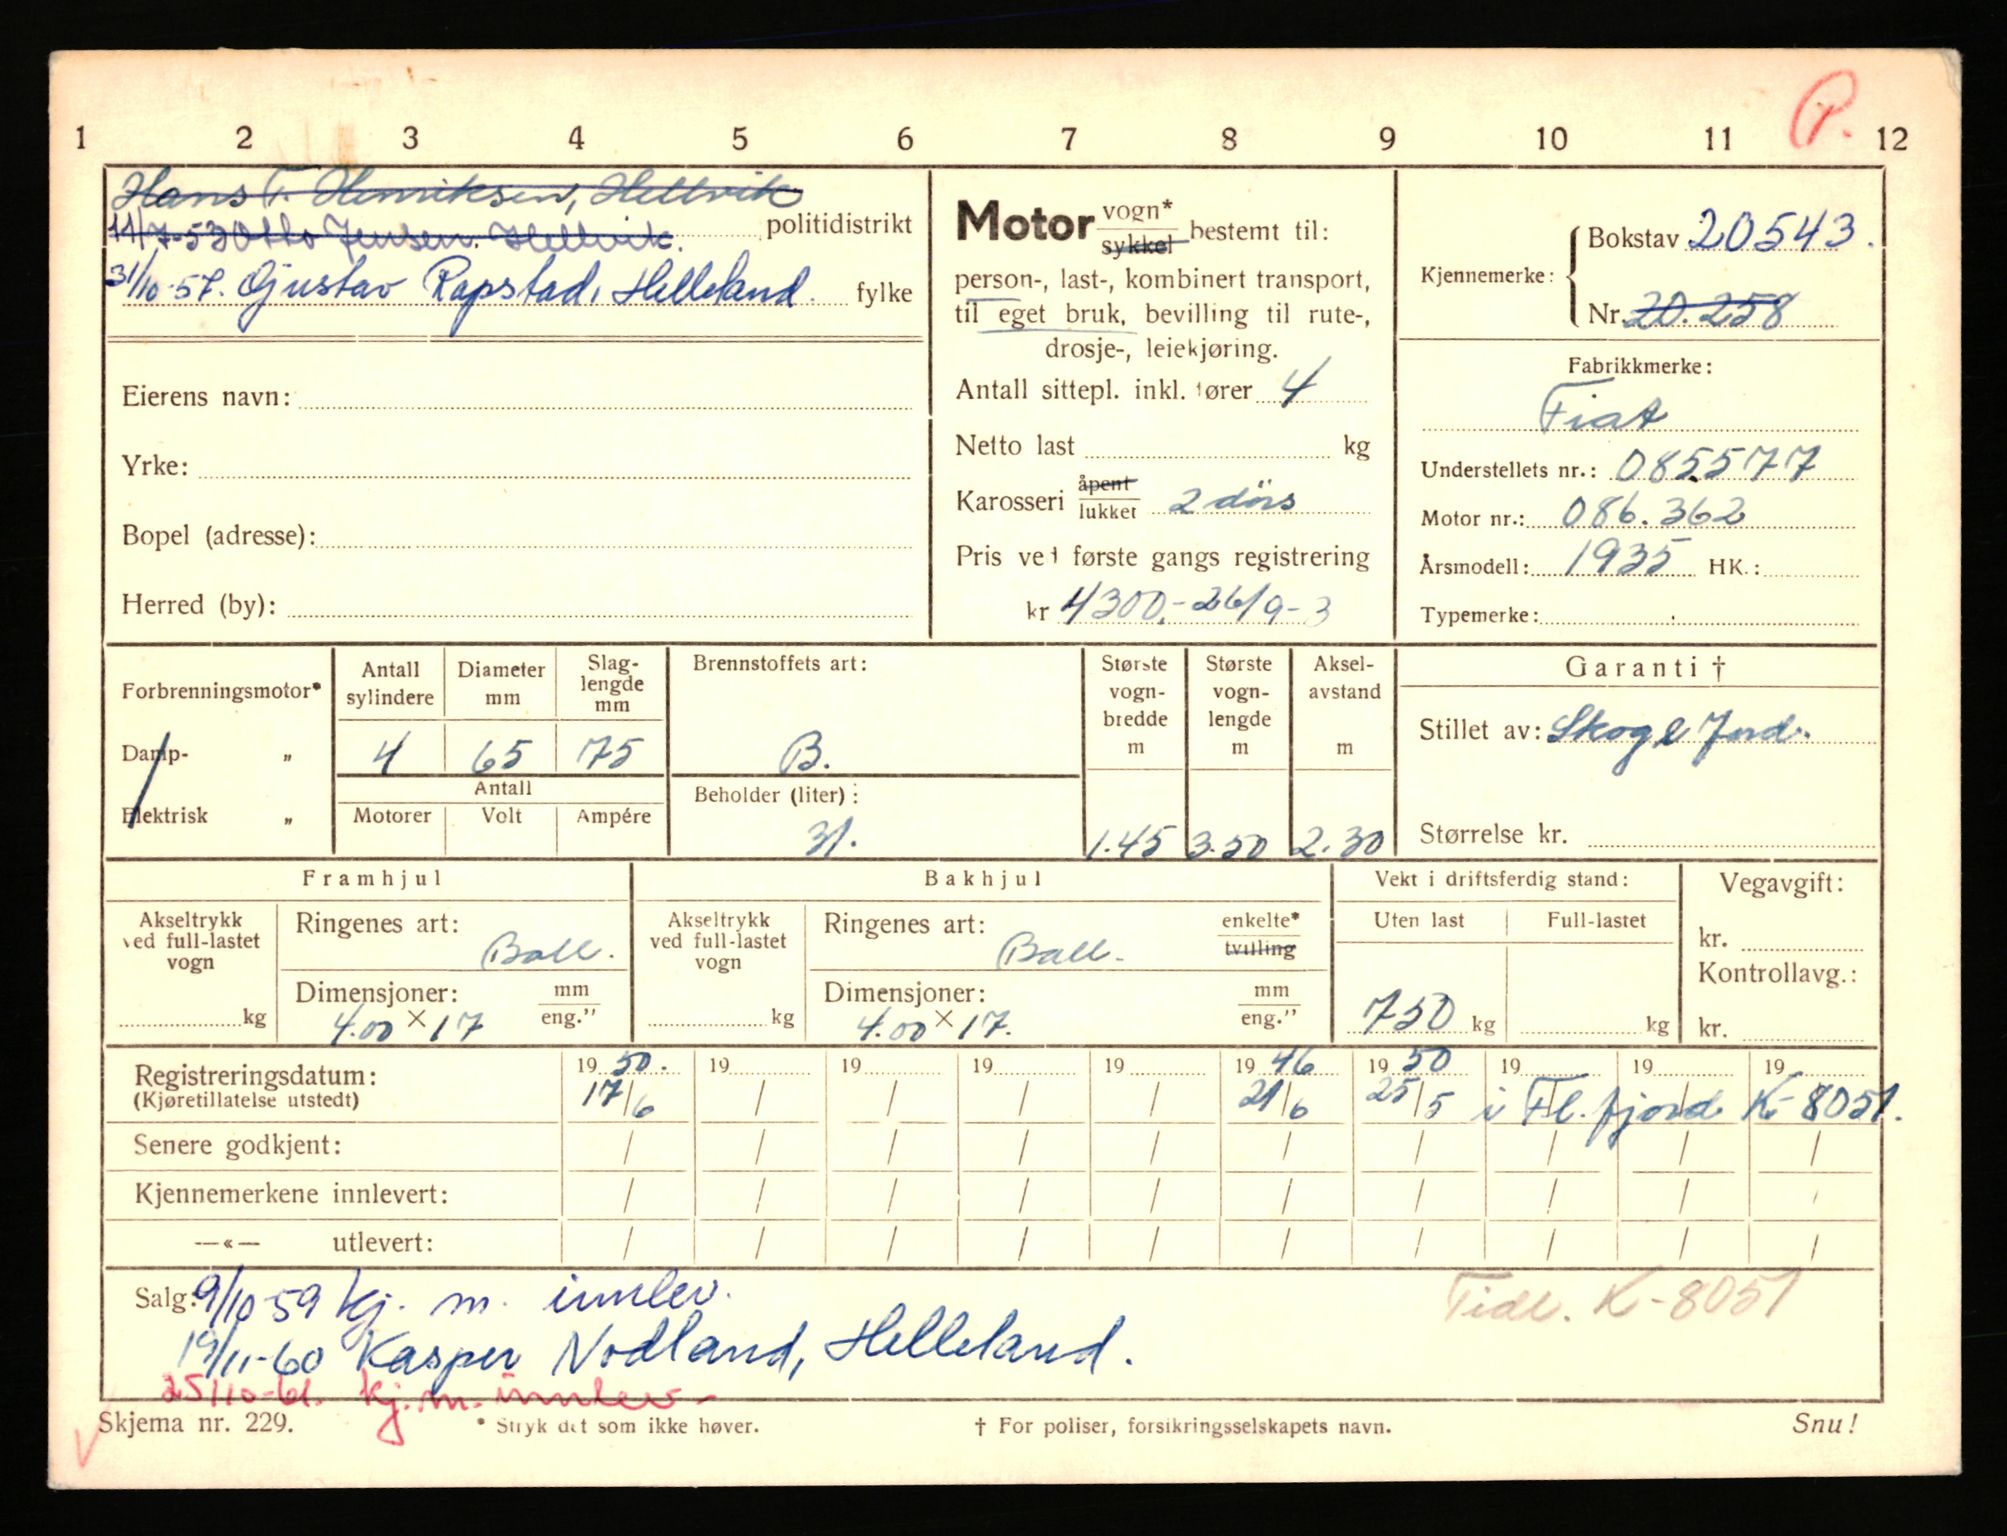 P.
1 2 3 4 5 6 7 8 9 10 11 12
Hans T. Henriksen, Hellvik
11/7-53 Otto Jensen. Hellvik. politidistrikt
31/10-57. Gjustav Rapstad, Helleland. fylke
Eierens navn:
Yrke:
Bopel (adresse):
Herred (by):
Motor vogn* sykkel bestemt til:
person-, last-, kombinert transport,
til eget bruk, bevilling til rute-,
drosje-, leiekjøring.
Antall sittepl. inkl. fører 4
Netto last kg
Karosseri åpent lukket 2 dörs
Pris ved første gangs registrering
kr 4300.- 26/9-3
Kjennemerke: Bokstav 20543.
Nr. 20.258
Fabrikkmerke:
Fiat
Understellets nr.: 085577
Motor nr.: 086.362
Årsmodell: 1935 HK.:
Typemerke:
Forbrenningsmotor*
Damp- „
Elektrisk „
Antall sylindere Diameter mm Slag-lengde mm
4 65 75
Antall
Motorer Volt Ampére
Brennstoffets art:
B.
Beholder (liter):
31.
Største vogn-bredde m Største vogn-lengde m Aksel-avstand m
1.45 3.50 2.30
Garanti †
Stillet av: Skogl Jord.
Størrelse kr.
Framhjul
Akseltrykk ved full-lastet vogn
kg
Ringenes art:
Ball.
Dimensjoner: mm eng."
4.00 × 17
Bakhjul
Akseltrykk ved full-lastet vogn
kg
Ringenes art: enkelte* tvilling
Ball.
Dimensjoner: mm eng."
4.00 × 17.
Vekt i driftsferdig stand:
Uten last Full-lastet
750 kg kg
Vegavgift:
kr.
Kontrollavg.:
kr.
1950. 19 19 19 19 1946 1950 19 19 19
Registreringsdatum:
(Kjøretillatelse utstedt)
17/6 / / / / 21/6 25/5 i Fl. fjord K-8051.
Senere godkjent:
Kjennemerkene innlevert:
—«— utlevert:
Salg: 9/10-59 kj. m. innlev. Tidl. K-8051
19/11-60 Kasper Nodland, Helleland.
25/10-61. kj. m. innlev.-
Skjema nr. 229. * Stryk det som ikke høver. † For poliser, forsikringsselskapets navn. Snu!